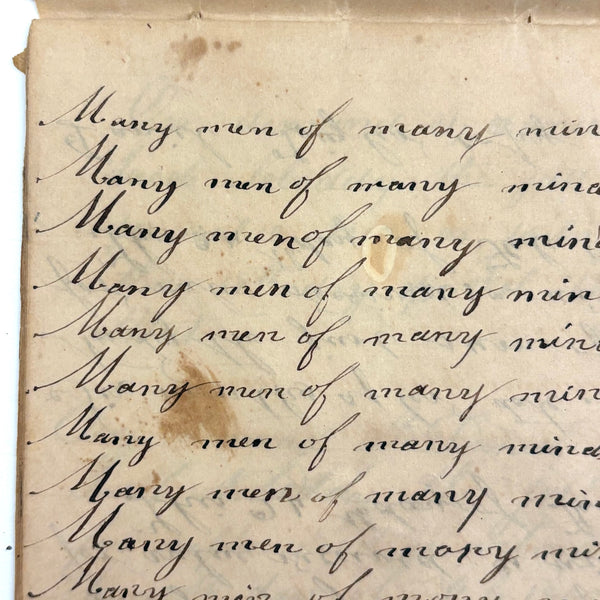 Many men of many min
Many men of many mind
Many men of many mind
Many men of many min
Many men of many mind
Many men of many min
Many men of many mind
Many men of many min
Many men of mopy mi
Many min of mony